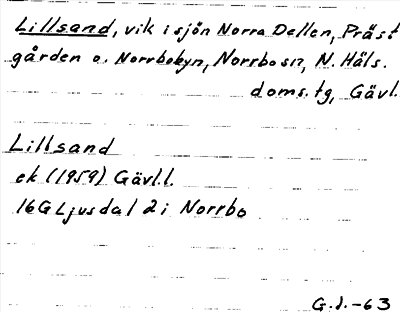 Lillsand, vik i sjön Norra Dellen, Präst
gården o. Norrbobyn, Norrbo sn, N. Häls.
doms. tg, Gävl.
Lillsand
ek (1959) Gävl.l.
16G Ljusdal 2 i Norrbo
G.J.-63